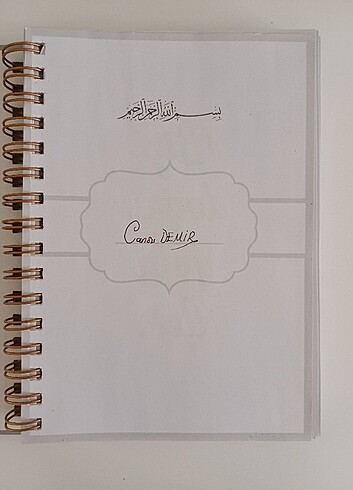 بسم الله الرحمن الرحيم
Cansu DEMİR